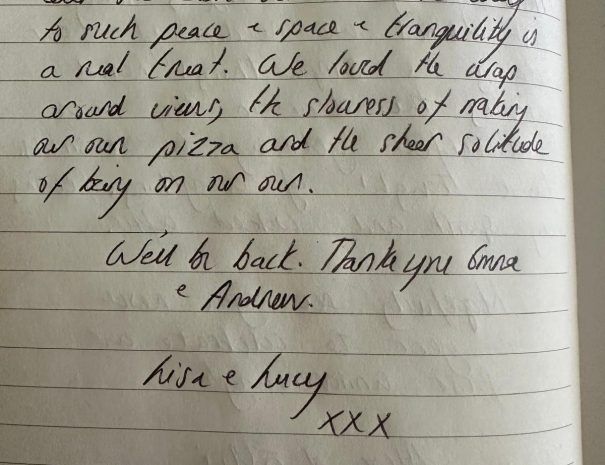 to such peace & space & tranquility is
a real treat. We loved the wrap
around views, the slowness of making
our own pizza and the sheer solitude
of being on our own.
We'll be back. Thank you Emma
& Andrew.
Lisa & Lucy
xxx